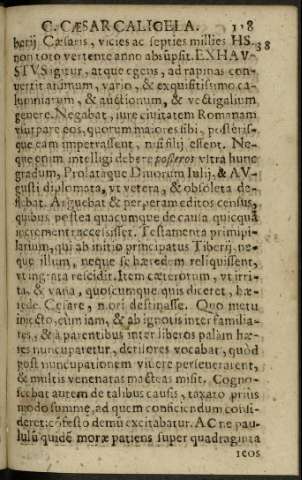 C. CÆSAR CALIGELA. 118
38
berij Cæsaris, vicies ac septies millies HS.
non toto vertente anno absũpsit. EXHAV-
STVS igitur, atque egens, ad rapinas con-
vertit animum, vario, & exquisitissimo ca-
lumniarum, & auctionum, & vectigalium
genere. Negabat, iure civitatem Romanam
vsurpare eos, quorum maiores sibi, posteris-
que eam impetrassent, nisi filij essent. Ne-
que enim intelligi debere posteros vltra hunc
gradum, Prolataque Divorum Iulij, & AV-
gusti diplomata, vt vetera, & obsoleta de-
flebat. Arguebat & perperam editos census,
quibus postea quacumque de causa quicquã
incrementi accessisset. Testamenta primipi-
larium, qui ab initio principatus Tiberij, ne-
que illum, neque se hæredem reliquissent,
vt ingrata rescidit. Item cæterorum, vt irri-
ta, & vana, quoscumque quis diceret, hæ-
rede Cesare, mori destinasse. Quo metu
iniecto, cùm iam, & ab ignotis inter familia-
res, & à parentibus inter liberos palàm hæ-
res nuncuparetur, derisores vocabat, quòd
post nuncupationem vivere perseverarent,
& multis venenatas macteas misit. Cogno-
scebat autem de talibus causis, taxato priùs
modo summæ, ad quem conficiendum consi-
deret: cõfesto demũ excitabatur. AC ne pau-
lulũ quidẽ moræ patiens super quadraginta
reos